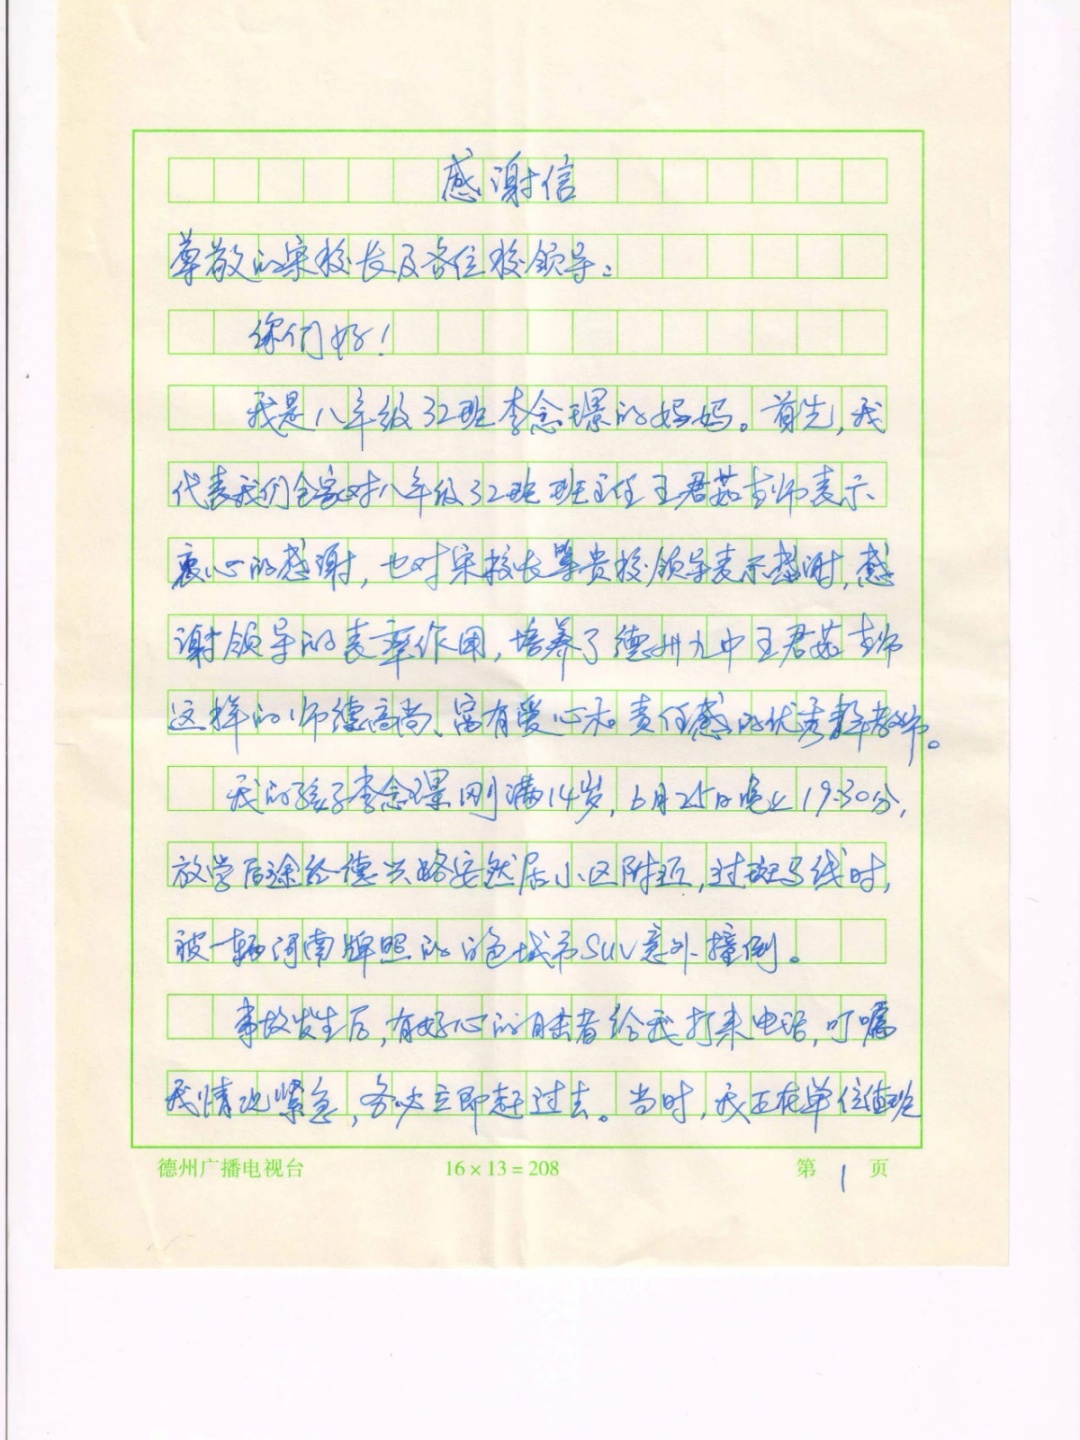 感谢信
尊敬的宋校长及各位校领导：
你们好！
我是八年级32班李念璟的妈妈。首先，我
代表我们全家对八年级32班班主任王君茹老师表示
衷心的感谢，也对宋校长等贵校领导表示感谢，感
谢领导的表率作用，培养了德州九中王君茹老师
这样的师德高尚、富有爱心和责任感的优秀教师。
我的孩子李念璟刚满14岁，6月25日晚上19:30分，
放学后途经德兴路安然居小区附近，过斑马线时，
被一辆河南牌照的白色城市SUV意外撞倒。
事故发生后，有好心的目击者给我打来电话，叮嘱
我情况紧急，务必立即赶过去。当时，我正在单位值班
德州广播电视台 16×13=208 第1页